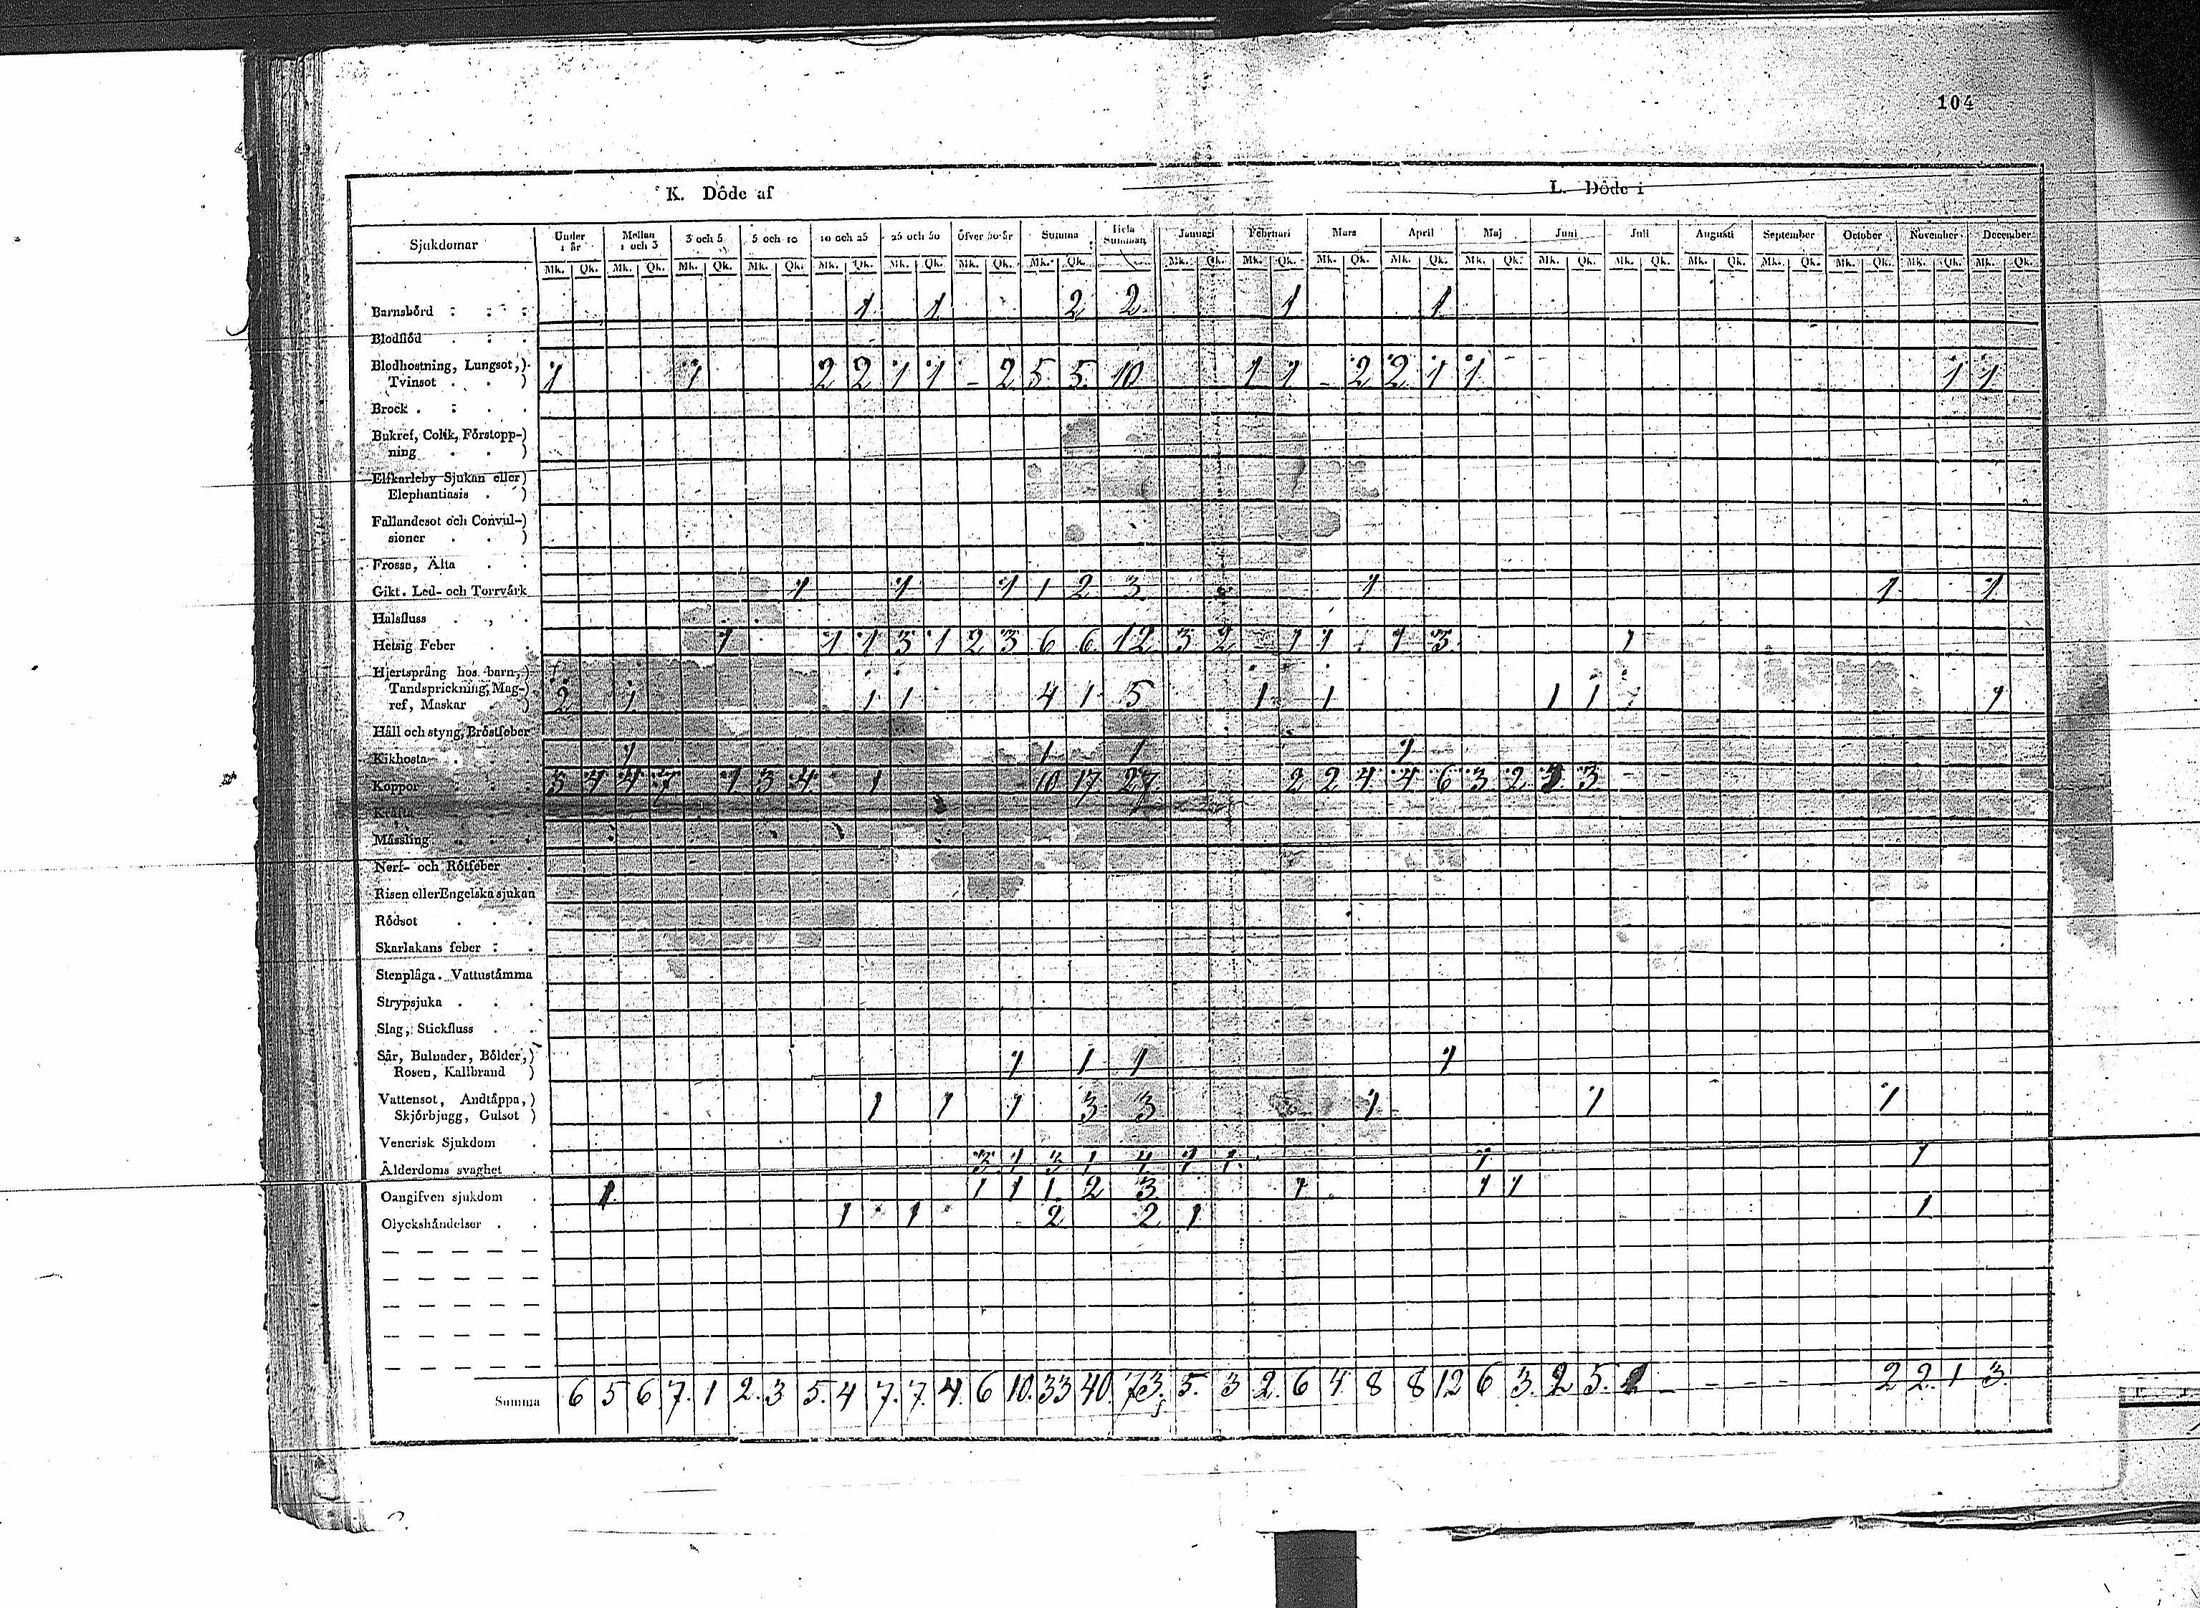 104
K. Döde af L. Döde i
Sjukdomar Under 1 år Mellan 1 och 3 3 och 5 5 och 10 10 och 25 25 och 50 Öfver 50 år Summa Hela Summan Januari Februari Mars April Maj Juni Juli Augusti September October November December
Mk. Qk. Mk. Qk. Mk. Qk. Mk. Qk. Mk. Qk. Mk. Qk. Mk. Qk. Mk. Qk. Mk. Qk. Mk. Qk. Mk. Qk. Mk. Qk. Mk. Qk. Mk. Qk. Mk. Qk. Mk. Qk. Mk. Qk. Mk. Qk. Mk. Qk. Mk. Qk.
Barnsbörd 1 1 2 2 1 1
Blodflöd
Blodhostning, Lungsot,)
Tvinsot ) 1 1 2 2 1 1 - 2 5 5 10 1 1 - 2 2 1 1 1 1
Brock
Bukref, Colik, Förstopp-)
ning )
Elfkarleby Sjukan eller)
Elephantiasis )
Fallandesot och Convul-)
sioner )
Frossa, Älta
Gikt. Led- och Torrvärk 1 1 1 1 2 3 1 1 1
Halsfluss
Hetsig Feber 1 1 1 3 1 2 3 6 6 12 3 2 - 1 1 1 3 1
Hjertsprång hos barn,)
Tandsprickning, Mag-)
ref, Maskar ) 2 1 1 1 4 1 5 1 1 1 1 1
Håll och styng, Bröstfeber
Kikhosta 1 1 1 1
Koppor 3 4 4 7 1 3 4 1 10 17 27 2 2 4 4 6 3 2 3 3
Kräfta
Mässling
Nerf- och Rötfeber
Risen eller Engelska sjukan
Rödsot
Skarlakans feber
Stenplåga. Vattustämma
Strypsjuka
Slag, Stickfluss
Sår, Bulnader, Bölder,)
Rosen, Kallbrand ) 1 1 1 1
Vattensot, Andtäppa,)
Skjörbjugg, Gulsot ) 1 1 1 3 3 1 1 1
Venerisk Sjukdom
Ålderdoms svaghet 3 1 3 1 4 1 1 1 1
Oangifven sjukdom 1 1 1 1 2 3 1 1 1
Olyckshändelser 1 1 2 2 1 1
Summa 6 5 6 7. 1 2. 3 5. 4 7. 7. 4. 6 10. 33 40. 73. 5. 3 2. 6 4. 8 8 12 6 3. 2 5. - - - - - 2 2. 1 3.